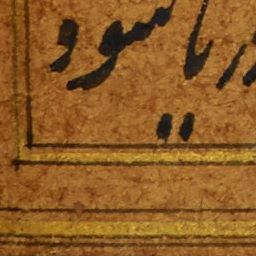 دریا سود